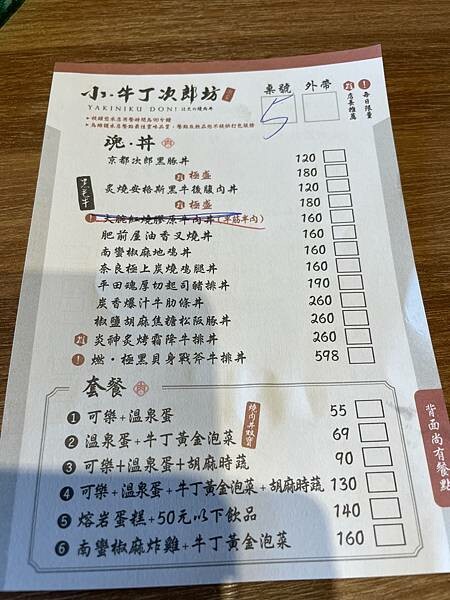 小・牛丁次郎坊
YAKINIKU DON!
桌號 外帶
5
店長推薦
每日限量
魂・丼
京都次郎黑豚丼 120
極盛 180
炙燒安格斯黑牛後腹肉丼 120
極盛 180
大腕紅燒膠原牛肉丼(半筋半肉) 160
肥前屋油香叉燒丼 160
南蠻椒麻地鸡丼 160
奈良極上炭燒鸡腿丼 160
平田魂厚切起司豬排丼 190
炭香爆汁牛肋條丼 260
椒鹽胡麻焦糖松阪豚丼 260
炎神炙烤霜降牛排丼 260
燃・極黑貝身戰斧牛排丼 598
套餐
燒肉丼雙寶
❶ 可樂+溫泉蛋 55
❷ 溫泉蛋+牛丁黃金泡菜 69
❸ 可樂+溫泉蛋+胡麻時蔬 90
❹ 可樂+溫泉蛋+牛丁黃金泡菜+胡麻時蔬 130
❺ 熔岩蛋糕+50元以下飲品 140
❻ 南蠻椒麻炸雞+牛丁黃金泡菜 160
背面尚有餐點